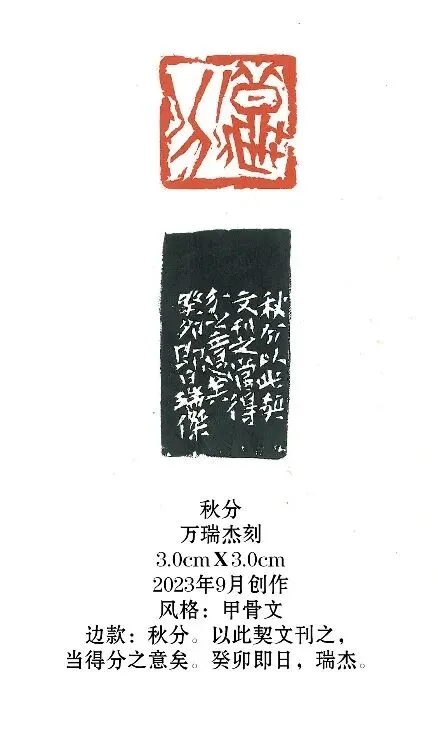 秋分以此契
文刊之當得
分之意矣
癸卯即日瑞傑
秋分
万瑞杰刻
3.0cm X 3.0cm
2023年9月创作
风格：甲骨文
边款：秋分。以此契文刊之，
当得分之意矣。癸卯即日，瑞杰。